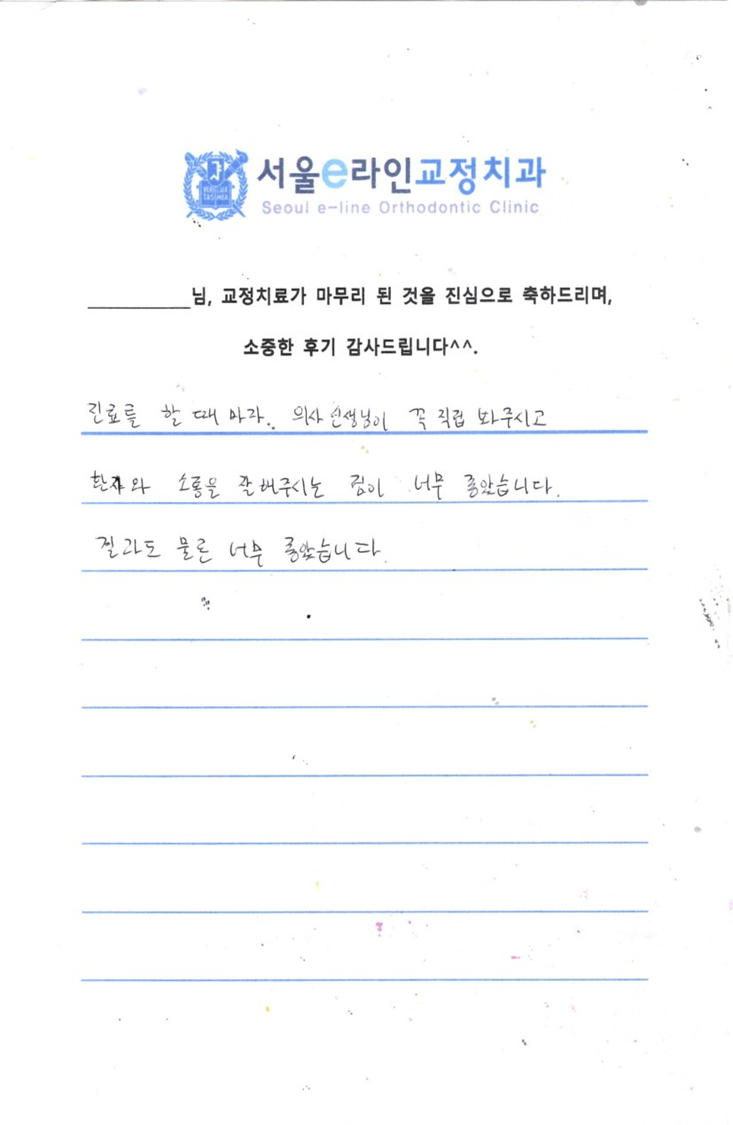 서울e라인교정치과
Seoul e-line Orthodontic Clinic
VERI LUX TAS MEA
__________님, 교정치료가 마무리 된 것을 진심으로 축하드리며,
소중한 후기 감사드립니다^^.
진료를 할 때 마다. 의사 선생님이 꼭 직접 봐주시고
환자와 소통을 잘 해주시는 점이 너무 좋았습니다.
결과도 물론 너무 좋았습니다.